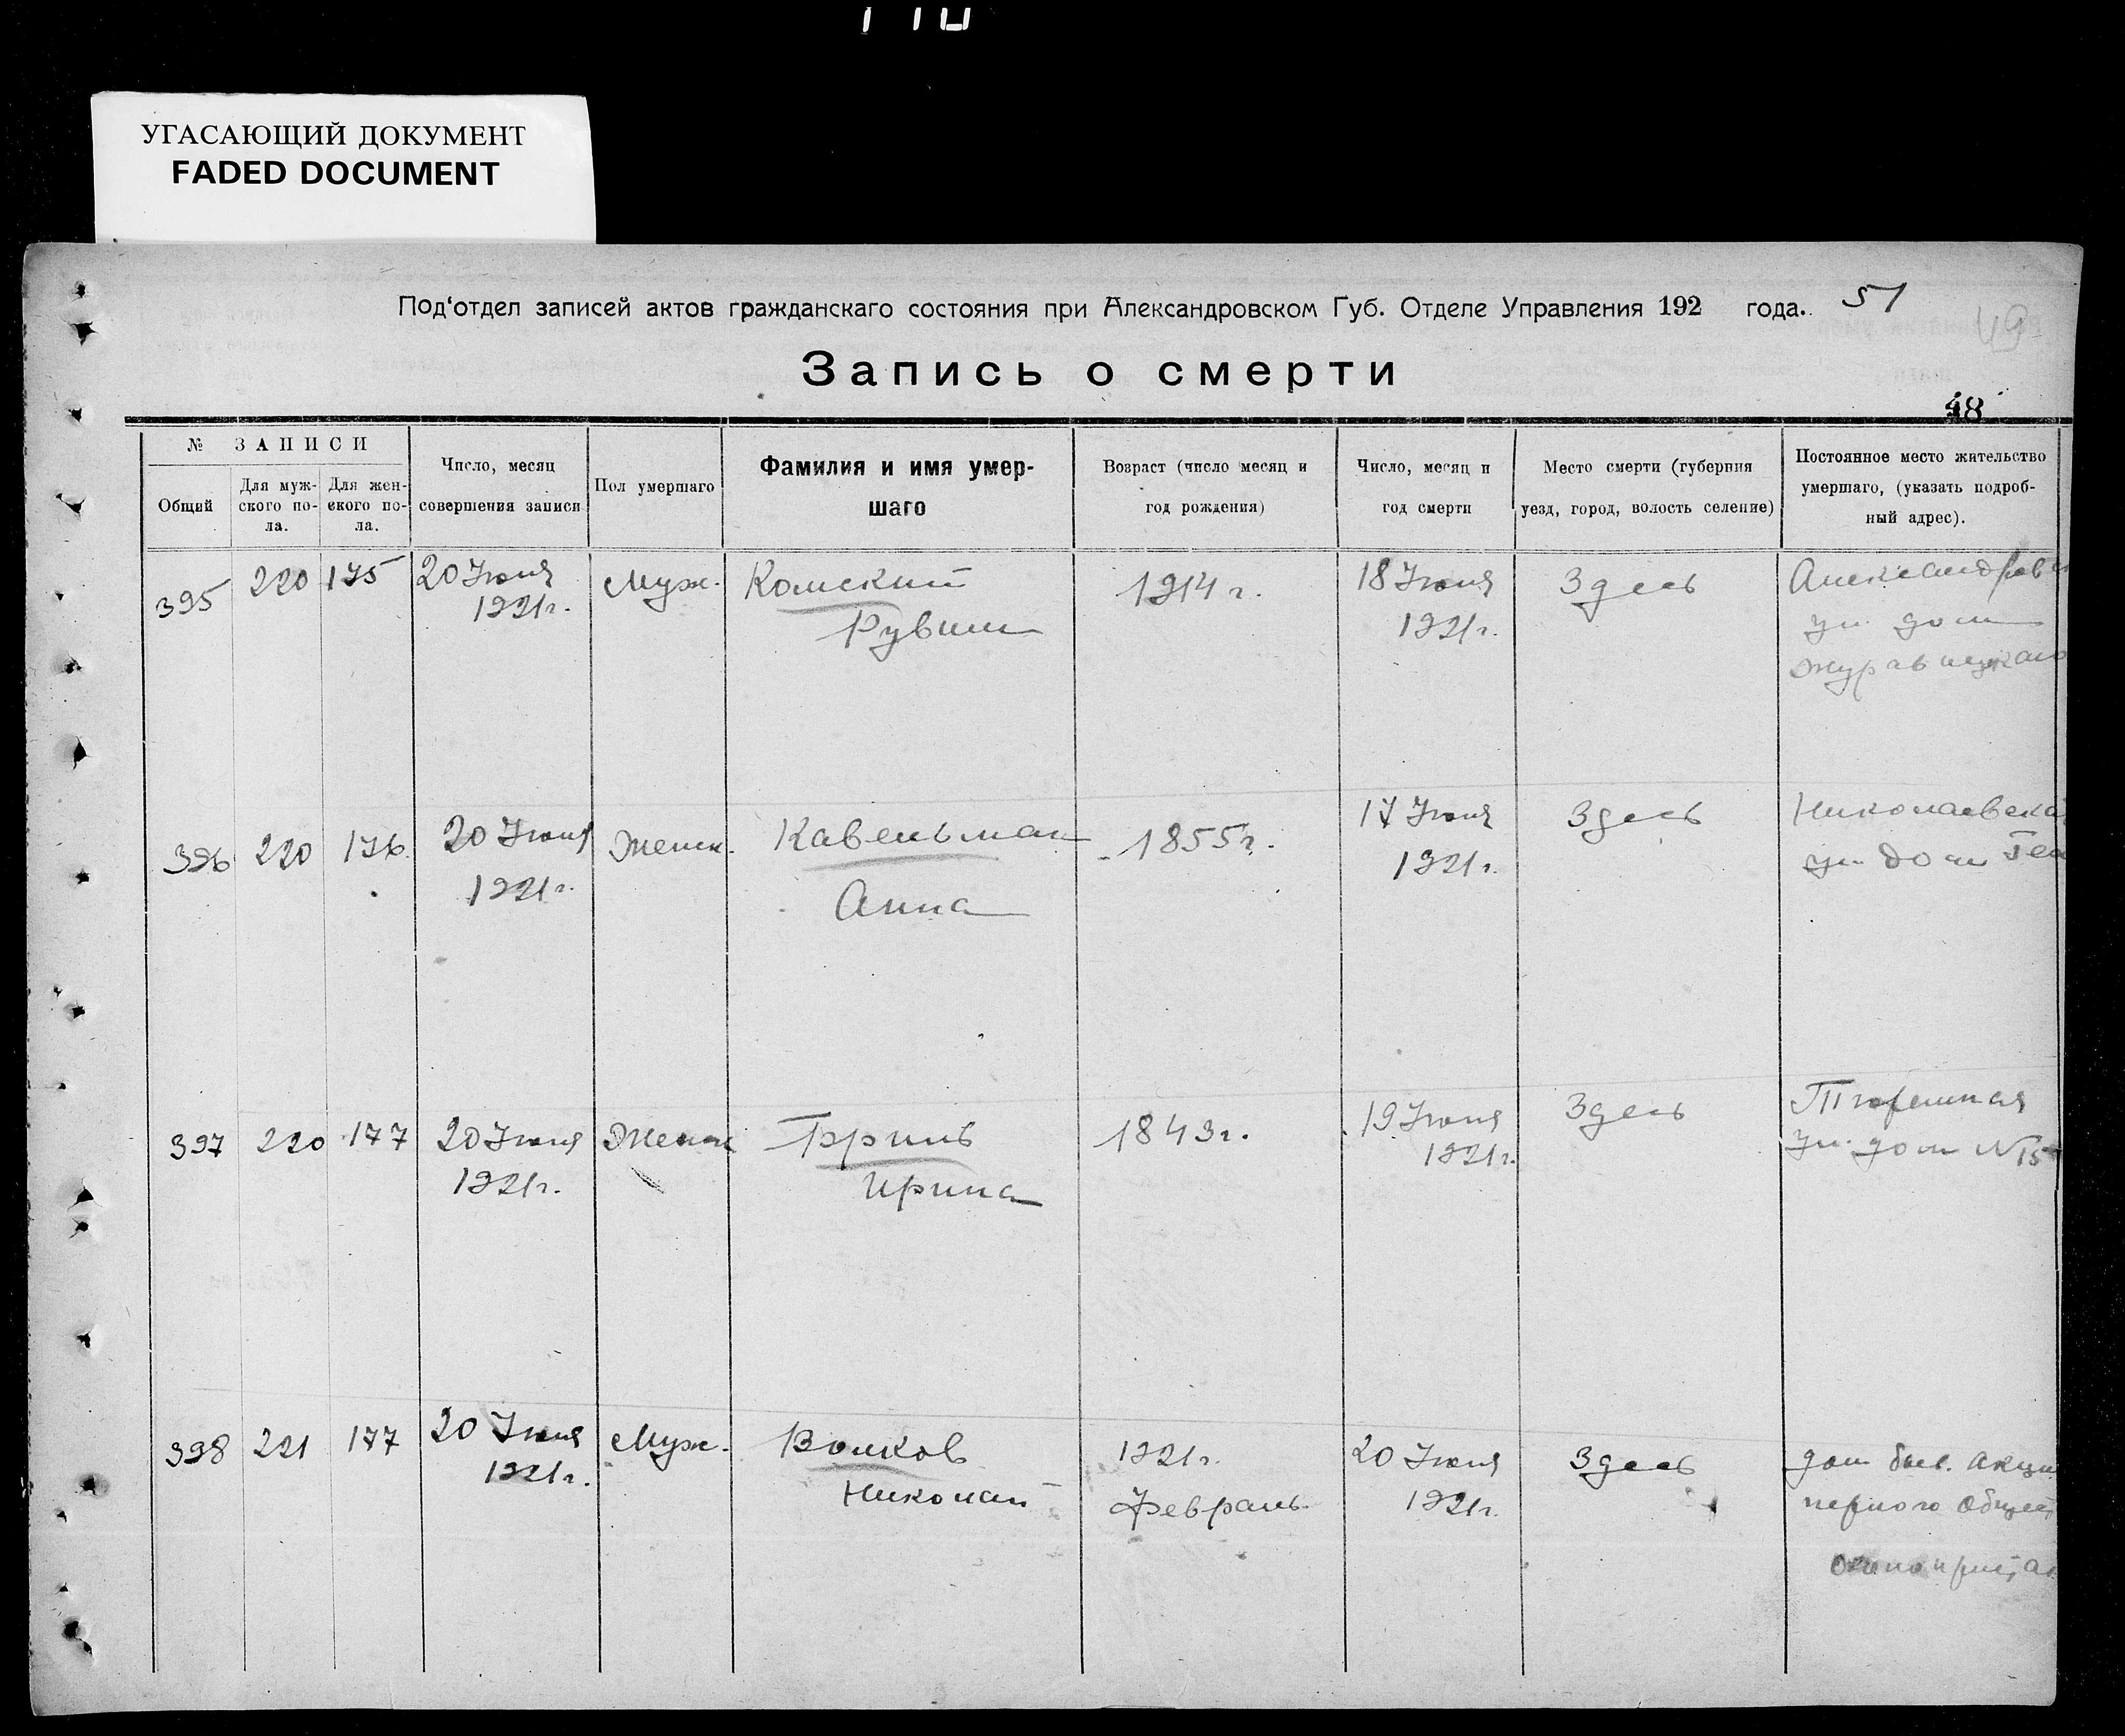 УГАСАЮЩИЙ ДОКУМЕНТ
FADED DOCUMENT
Под'отдел записей актов гражданскаго состояния при Александровском Губ. Отделе Управления 192 года. 51
49
Запись о смерти
48
№ ЗАПИСИ
Общий
Для муж-
ского по-
ла.
Для жен-
ского по-
ла.
Число, месяц
совершения записи
Пол умершаго
Фамилия и имя умер-
шаго
Возраст (число месяц и
год рождения)
Число, месяц и
год смерти
Место смерти (губерния
уезд, город, волость селение)
Постоянное место жительство
умершаго, (указать подроб-
ный адрес).
395 220 175 20 Июня
1921г.
Муж. Комский
Рувим
1914 г. 18 Июня
1921г.
Здесь
ул. дом
396 220 176 20 Июня
1921г.
Женск. Кавельман
Анна
1855г. 17 Июня
1921г.
Здесь Николаевска
ул дом
397 220 177 20 Июня
1921г.
Женск
Ирина
1843г. 19 Июня
1921г.
Здесь Тюремная
ул. дом N 15
398 221 177 20 Июня
1921г.
Муж. Волков
Николай
1921г.
Февраль
20 Июня
1921г.
Здесь дом быв. Акцио
нерного Общест